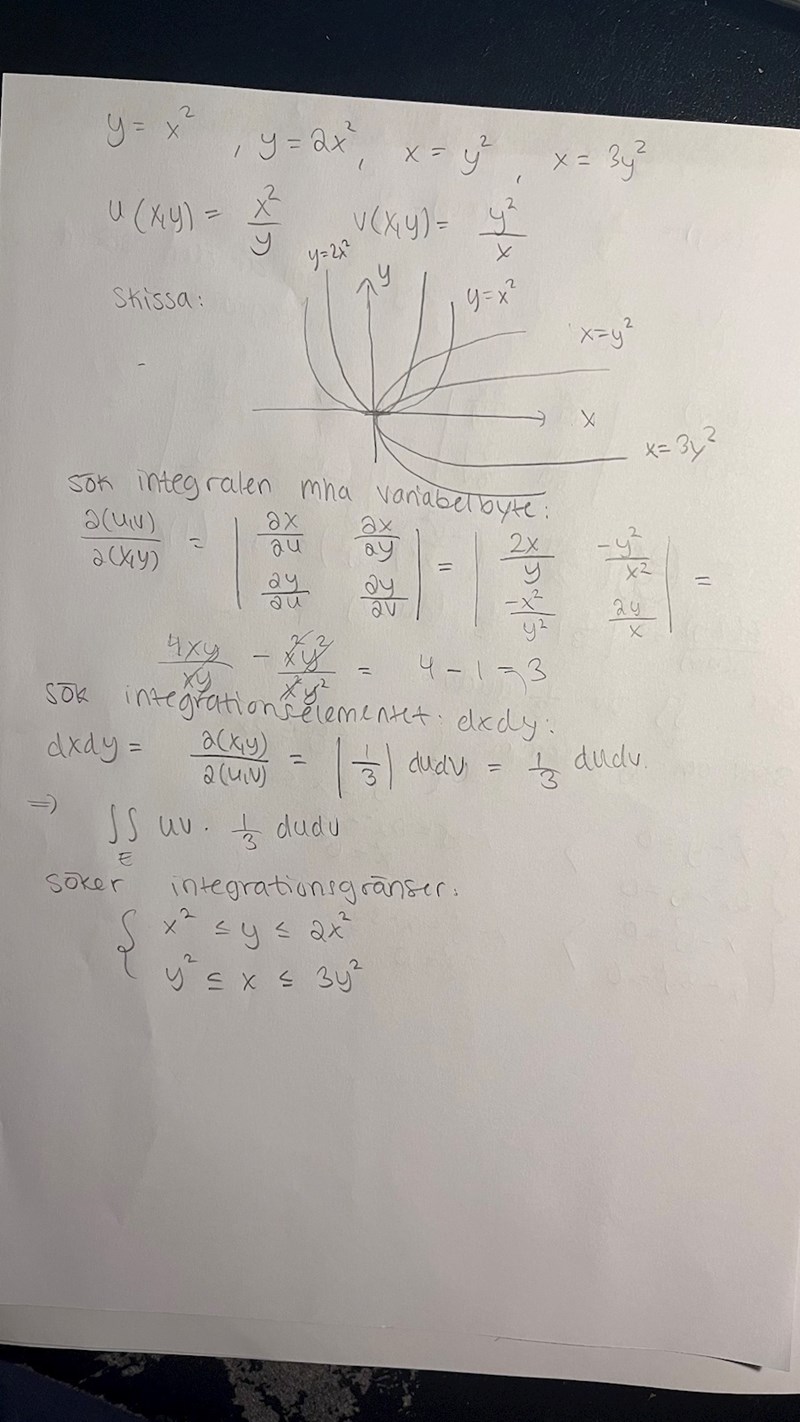 y = x² , y = 2x² , x = y² , x = 3y²
u(x,y) = x²/y v(x,y) = y²/x
y=2x²
y
y=x²
skissa:
x=y²
x
x=3y²
sök integralen mha variabelbyte:
∂(u,v)/∂(x,y) = | ∂x/∂u ∂x/∂y ; ∂y/∂u ∂y/∂v | = | 2x/y -y²/x² ; -x²/y² 2y/x | =
4xy/xy - x²y²/x²y² = 4 - 1 = 3
sök integrationselementet: dxdy:
dxdy = ∂(x,y)/∂(u,v) = |1/3| dudv = 1/3 dudv.
⇒ ∬_E uv · 1/3 dudv
söker integrationsgränser:
{ x² ≤ y ≤ 2x²
y² ≤ x ≤ 3y²